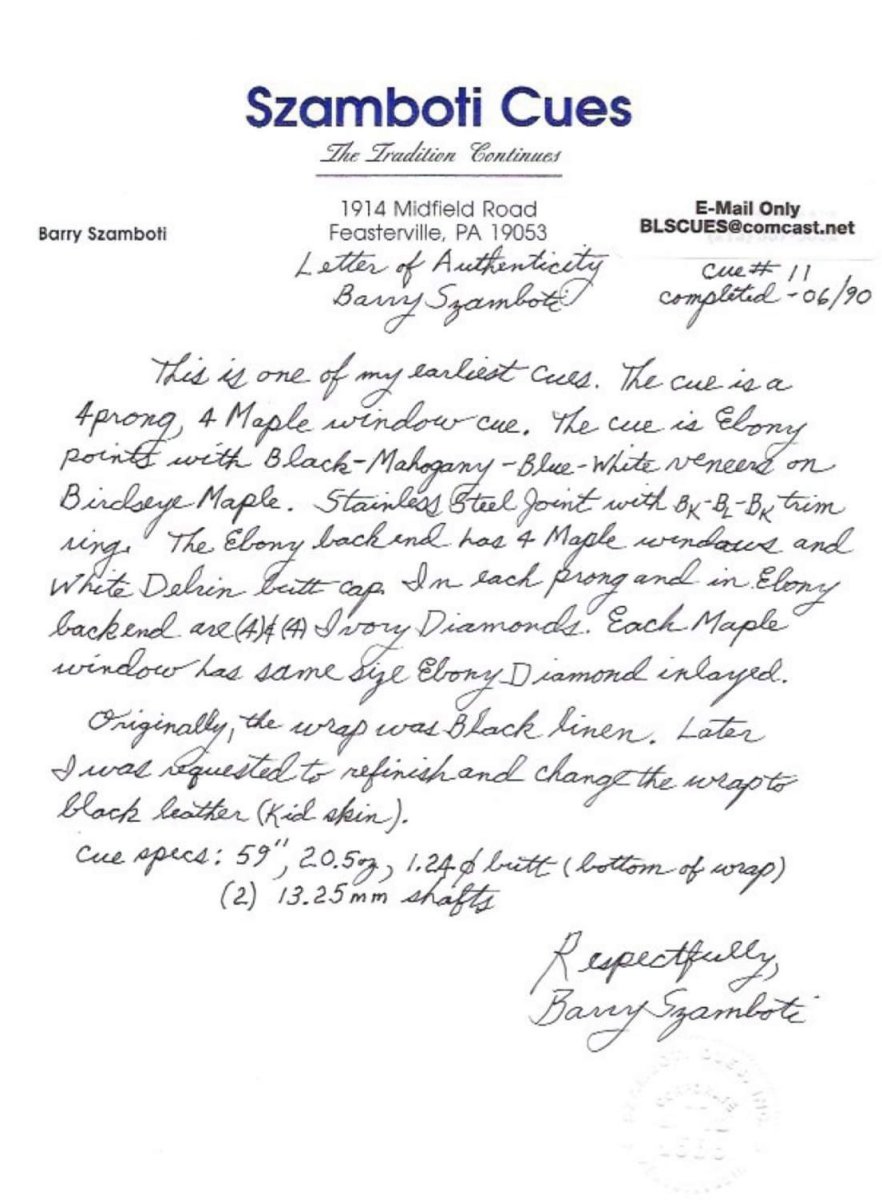 Szamboti Cues
The Tradition Continues
1914 Midfield Road
Feasterville, PA 19053
Barry Szamboti
E-Mail Only
BLSCUES@comcast.net
Letter of Authenticity
Barry Szamboti
cue # 11
completed - 06/90
This is one of my earliest cues. The cue is a
4prong, 4 Maple window cue. The cue is Ebony
points with Black-Mahogany-Blue-White veneers on
Birdseye Maple. Stainless Steel Joint with BK-BL-BK trim
ring. The Ebony back end has 4 Maple windows and
White Delrin butt cap. In each prong and in Ebony
back end are (4)&(4) Ivory Diamonds. Each Maple
window has same size Ebony Diamond inlayed.
Originally, the wrap was Black linen. Later
I was requested to refinish and change the wrap to
black leather (Kid skin).
Cue specs: 59", 20.5oz, 1.24 ϕ butt (bottom of wrap)
(2) 13.25mm shafts
Respectfully,
Barry Szamboti
CORPORATE